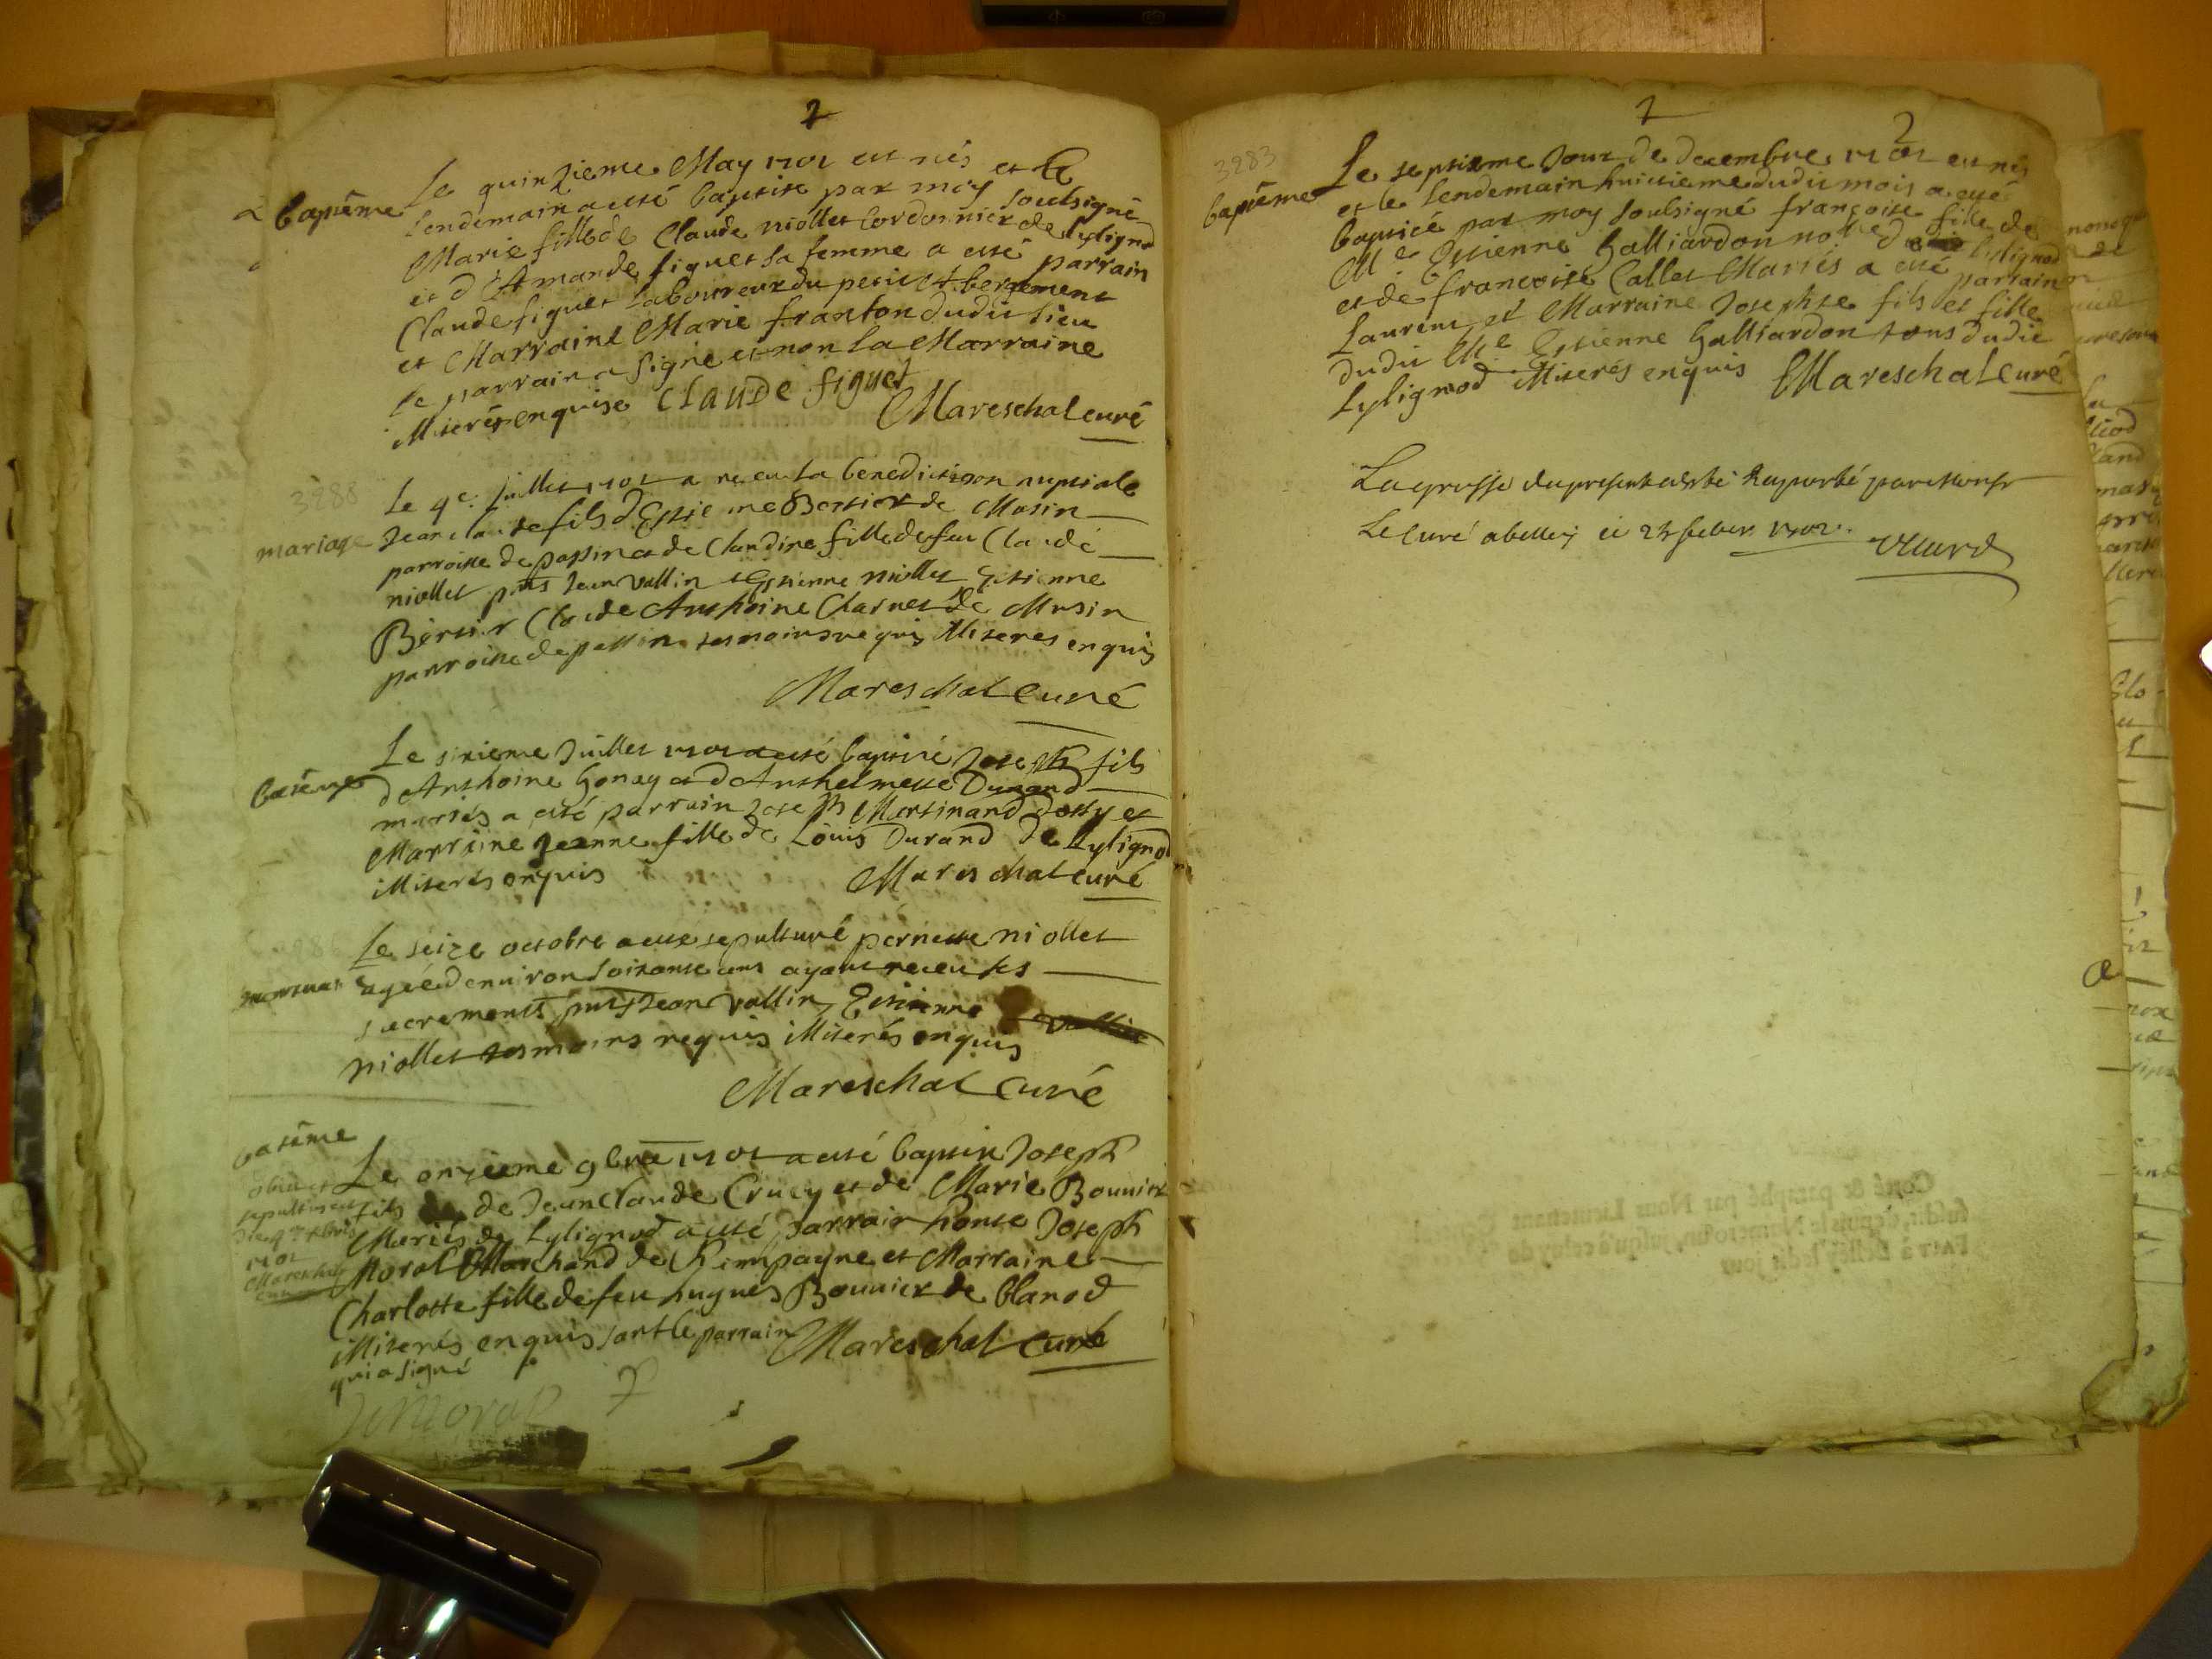 2
baptême
Le quinzieme May 1701 est née et le
lendemain a esté baptise par moy soubsigné
Marie fille de Claude niollet Cordonnier de lylignod
et d'Amande figuet sa femme a esté parrain
Claude figuet Laboureur du petit Abergement
et Marraine Marie franton dudit lieu
le parrain a signé et non la Marraine
illiterés enquise Claude figuet
Mareschal curé
3288
mariage
Le 4e Juillet 1701 a receu la benediction nuptiale
Jean claude fils d'Estienne Bertier de Musin
parroisse de passin et de Claudine fille de feu Claude
niollet pnts Jean vallin Estienne niollet Estienne
Bertier Claude Anthoine Charvet de Musin
parroisse de passin tesmoins requis illiteres enquis
Mareschal Curé
batême
Le sixieme Juillet 1701 a esté baptisé Joseph fils
d'Anthoine Gonay et d'Anthelmette Durand
mariés a esté parrain Joseph Martinand dossy et
Marraine Jeanne fille de Louis Durand de Lylignod
illiterés enquis
Mareschal curé
Le seize octobre a esté sepulturé pernette niollet
agée d'environ soixante ans ayant receu les
sacrements pnts Jean vallin, Estienne
niollet tesmoins requis illiterés enquis
Mareschal Curé
batême
Le onzieme 9bre 1701 a esté baptisé Joseph
fils de Jean Claude Crucy et de Marie Bouvier
Mariés de Lylignod a esté parrain honte Joseph
Moral Marchand de Champagne et Marraine
Charlotte fille de feu hugues Bouvier de blanod
illiterés enquis sauf le parrain
qui a signé
Mareschal curé
Moral
obiit et
sepultus est
1701
Mareschal
curé
2
3283
baptême
Le septieme Jour de decembre 1701 est née
et le lendemain huictieme dudit mois a esté
baptisé par moy soubsigné françoise fille de
Me Estienne Galliardon nore de lylignod
et de françoise Callet Mariés a esté parrain
Laurent et Marraine Josephte fils et fille
dudit Me Estienne Galliardon tous dudit
Lylignod illiterés enquis Mareschal Curé
La grosse du present a esté raporté par
Le Curé a belley ce 1702.
Coté & paraphé par Nous Lieutenant
susdit, depuis le Numero un, jusqu'à celuy de
FAIT à Belley ledit jour